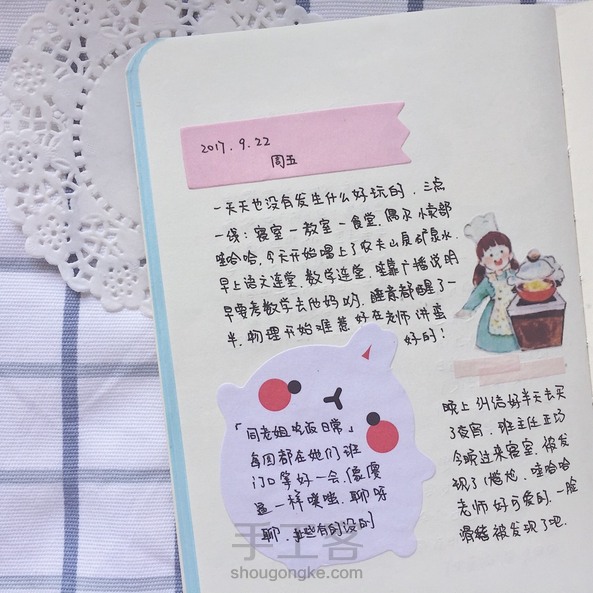 2017.9.22
周五
一天天也没有发生什么好玩的.三点
一线:寝室一教室一食堂.偶尔小卖部
哇哈哈.今天开始喝上了农夫山泉矿泉水.
早上语文连堂.数学连堂.哇靠广播说明
早要考数学去他妈哟.瞌睡都醒了一
半.物理开始难惹 好在老师讲蛮
好的!
「同老姐吃饭日常」
每周都在他们班
门口等好一会.像傻
逼一样噗嗤.聊呀
聊.那些有的没的
晚上纠结好半天去买
了夜宵.班主任正巧
今晚过来寝室.被发
现了!尴尬.哇哈哈
老师好可爱的.一脸
滑稽 被发现了吧.
手工客
shougongke.com